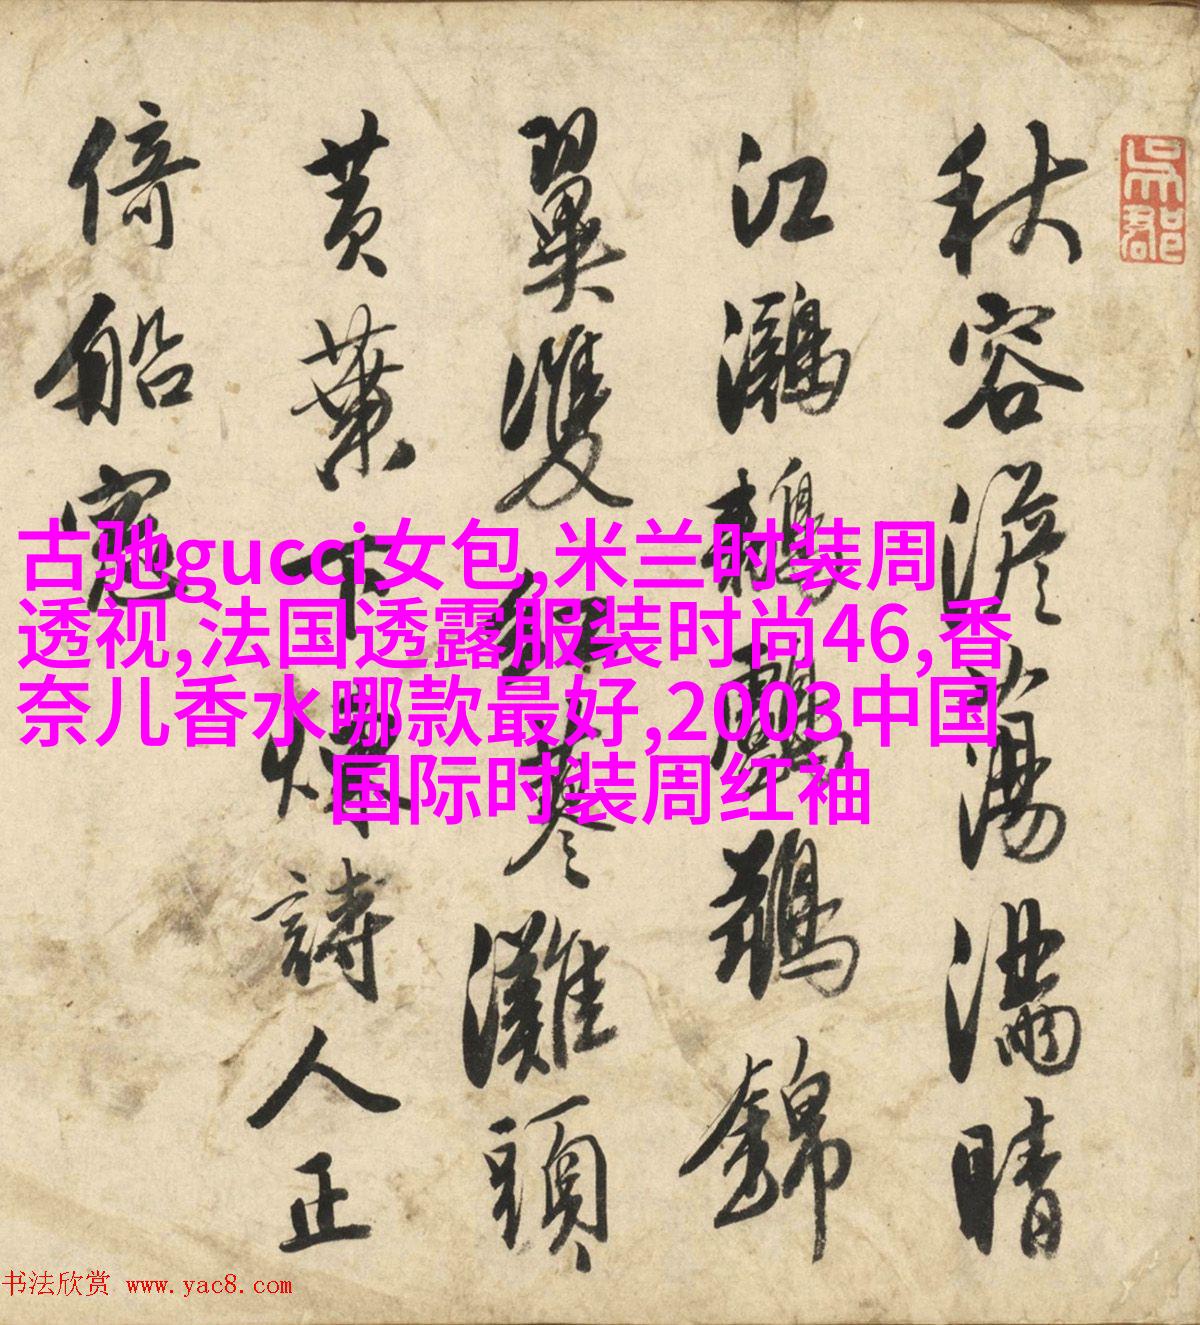 吳郡
秋容澹蕩滿晴
江鸂鶒錦
翼雙紅蓼灘頭
黄葉下詩人正
倚船窓
古驰gucci女包,米兰时装周
透视,法国透露服装时尚46,香
奈儿香水哪款最好,2003中国
国际时装周红袖
书法欣赏 www.yac8.com